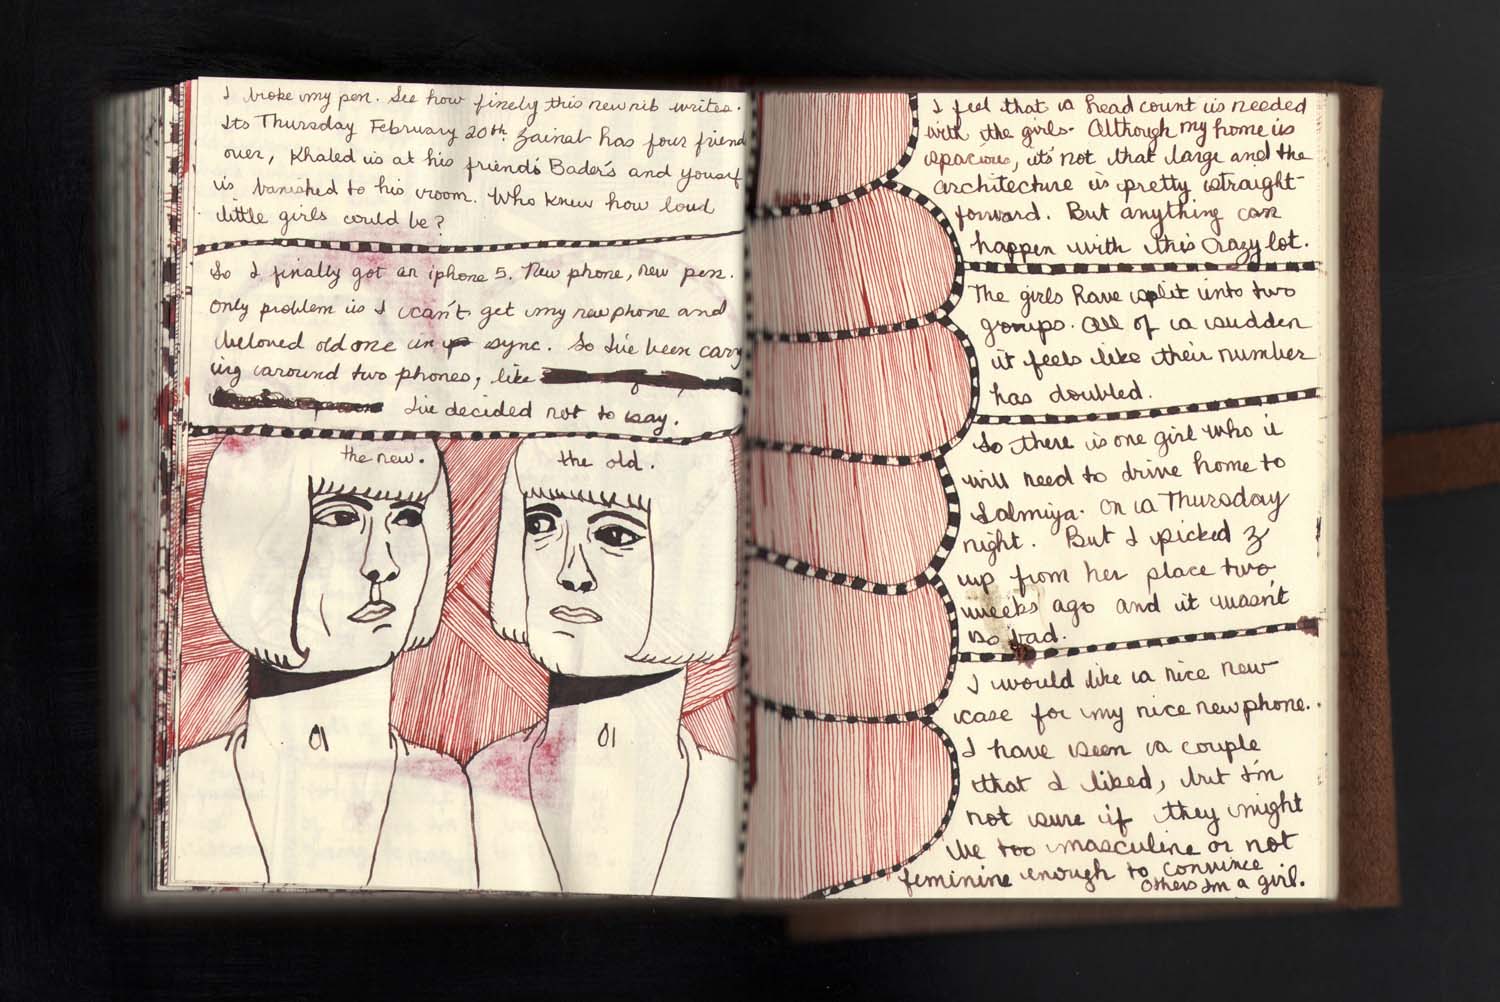 I broke my pen. See how finely this new nib writes.
Its Thursday February 20th. Zainab has four friends
over, Khaled is at his friend's Bader's and Yousef
is banished to his room. Who knew how loud
little girls could be?
So I finally got an iphone 5. New phone, new pen.
Only problem is I can't get my new phone and
beloved old one in sync. So I've been carry
ing around two phones, like
I've decided not to say.
the new.
the old.
01
01
I feel that a head count is needed
with the girls. Although my home is
spacious, it's not that large and the
architecture is pretty straight-
forward. But anything can
happen with this crazy lot.
The girls have split into two
groups. All of a sudden
it feels like their number
has doubled.
So there is one girl who I
will need to drive home to
Salmiya. On a Thursday
night. But I picked Z
up from her place two
weeks ago and it wasn't
so bad.
I would like a nice new
case for my nice new phone.
I have seen a couple
that I liked, but I'm
not sure if they might
be too masculine or not
feminine enough to convince
others Im a girl.